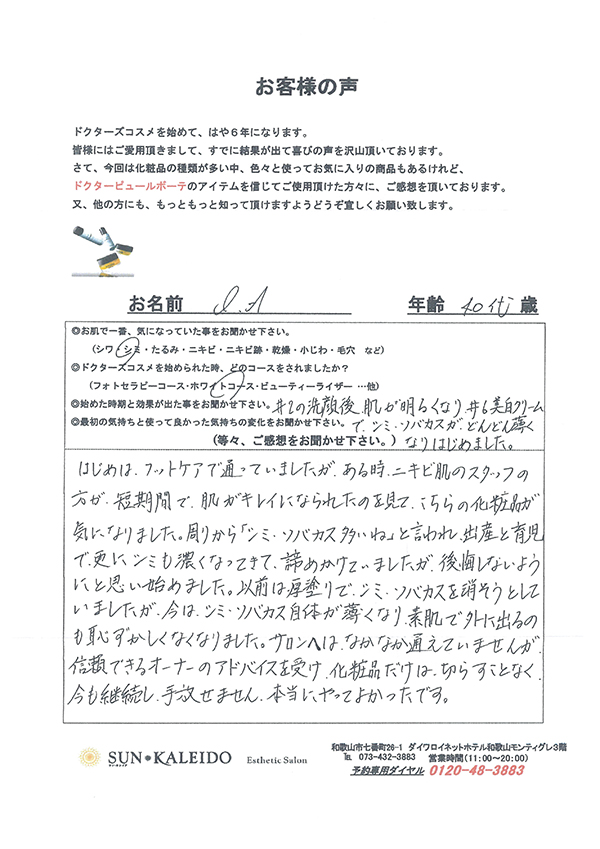 お客様の声
ドクターズコスメを始めて、はや６年になります。
皆様にはご愛用頂きまして、すでに結果が出て喜びの声を沢山頂いております。
さて、今回は化粧品の種類が多い中、色々と使ってお気に入りの商品もあるけれど、
ドクターピュールボーテのアイテムを信じてご使用頂けた方々に、ご感想を頂いております。
又、他の方にも、もっともっと知って頂けますようどうぞ宜しくお願い致します。
お名前 I.A 年齢 40代 歳
◎お肌で一番、気になっていた事をお聞かせ下さい。
（シワ・シミ・たるみ・ニキビ・ニキビ跡・乾燥・小じわ・毛穴 など）
◎ドクターズコスメを始められた時、どのコースをされましたか？
（フォトセラピーコース・ホワイトコース・ビューティーライザー …他）
◎始めた時期と効果が出た事をお聞かせ下さい。#2の洗顔後、肌が明るくなり、#6美白クリーム
◎最初の気持ちと使って良かった気持ちの変化をお聞かせ下さい。で、シミ・ソバカスが、どんどん薄く
（等々、ご感想をお聞かせ下さい。）なりはじめました。
はじめは、フットケアで通っていましたが、ある時、ニキビ肌のスタッフの
方が、短期間で、肌がキレイになられたのを見て、こちらの化粧品が
気になりました。周りから「シミ・ソバカス多いね」と言われ、出産と育児
で、更にシミも濃くなってきて、諦めかけていましたが、後悔しないよう
にと思い始めました。以前は厚塗りで、シミ・ソバカスを消そうとして
いましたが、今は、シミ・ソバカス自体が薄くなり、素肌で外に出るの
も恥ずかしくなくなりました。サロンへは、なかなか通えていませんが、
信頼できるオーナーのアドバイスを受け、化粧品だけは、切らすことなく、
今も継続し、手放せません。本当にやってよかったです。
SUN KALEIDO Esthetic Salon
和歌山市七番町26-1 ダイワロイネットホテル和歌山モンティグレ３階
TEL 073-432-3883 営業時間（11:00～20:00）
予約専用ダイヤル 0120-48-3883